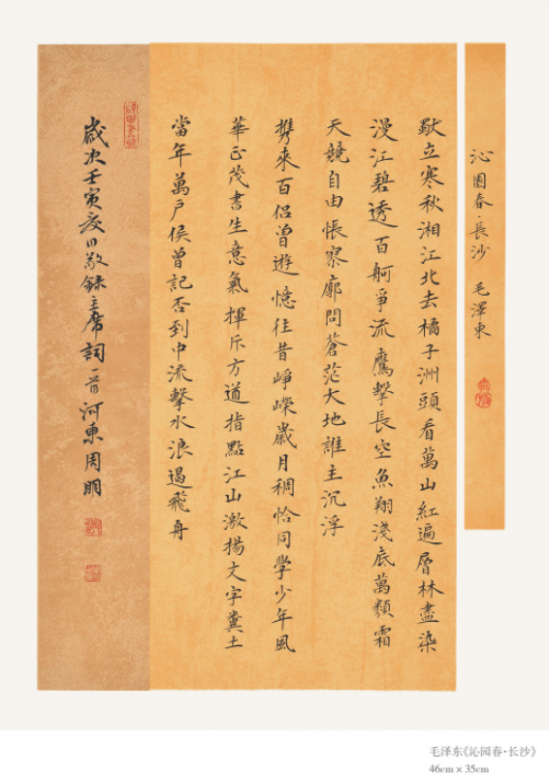 沁園春·長沙 毛澤東
獨立寒秋湘江北去橘子洲頭看萬山紅遍層林盡染
漫江碧透百舸爭流鷹擊長空魚翔淺底萬類霜
天競自由悵寥廓問蒼茫大地誰主沉浮
攜來百侶曾遊憶往昔崢嶸歲月稠恰同學少年風
華正茂書生意氣揮斥方遒指點江山激揚文字糞土
當年萬戶侯曾記否到中流擊水浪遏飛舟
歲次壬寅夏日敬錄主席詞一首河東周明
毛泽东《沁园春·长沙》
46cm × 35cm